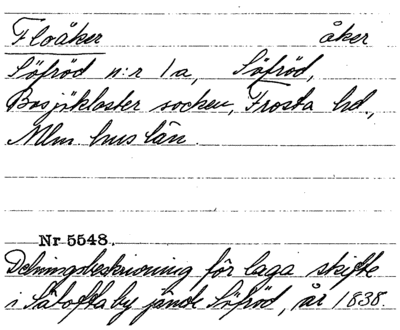 Floåker åker
Söfröd n:r 1a, Söfröd,
Bosjökloster socken, Frosta hd.,
Mlm. hus län.
Nr 5548.
Delningsbeskrivning för laga skifte
i Sätofta by jämte Söfröd, år 1838.